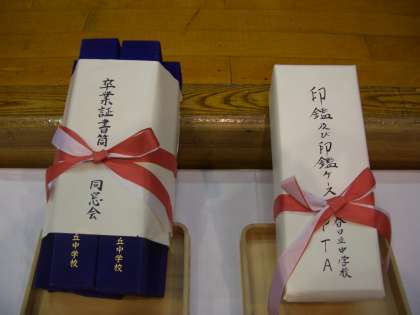 卒業証書筒
同窓会
丘中学校
丘中学校
印鑑及び印鑑ケース
丘中学校
PTA